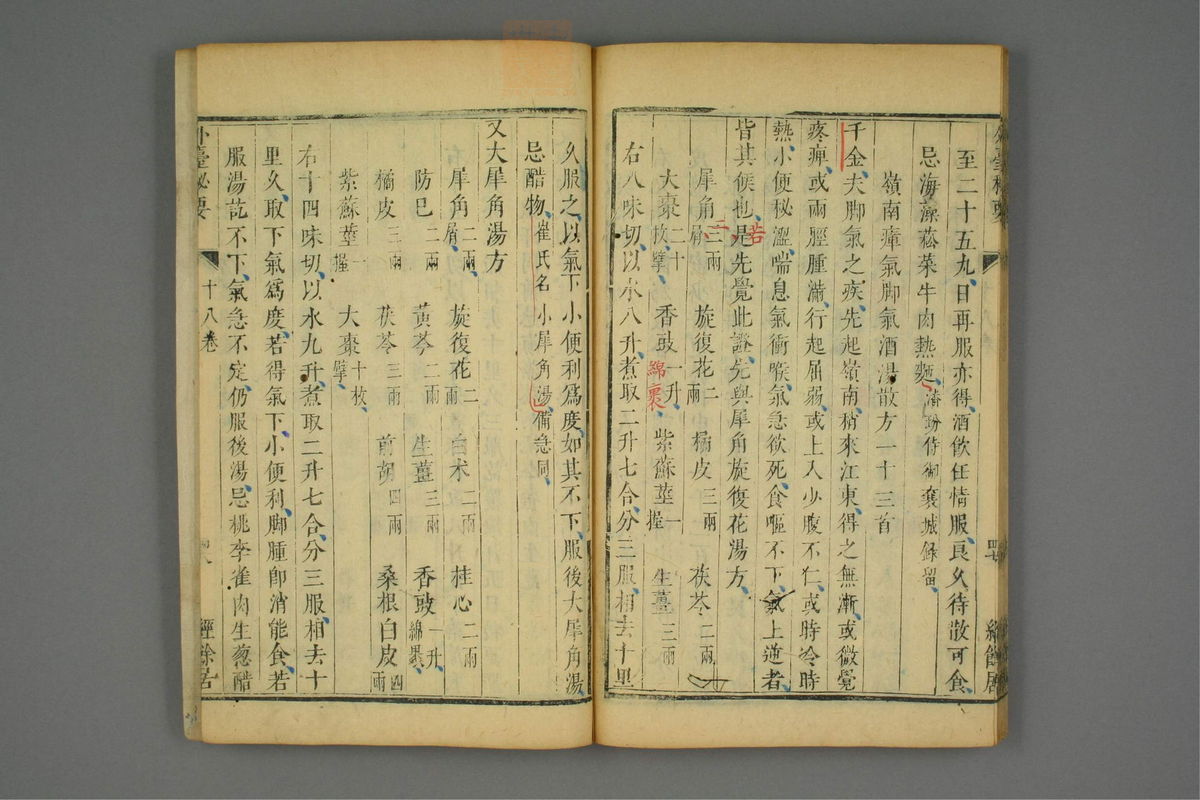 至二十五九日再服亦得酒飲任情服良久待散可食
忌海藻菘菜牛肉熱麵
嶺南瘴氣脚氣酒湯散方一十三首
千金夫脚氣之疾先起嶺南稍來江東得之無漸或微覺
疼痺或兩脛腫滿行起屈弱或上入少腹不仁或時冷時
熱小便秘澀喘息氣衝喉氣急欲死食嘔不下氣上逆者
皆其候也若是先覺此證先與犀角旋復花湯方
犀角二兩屑 旋復花二兩 橘皮三兩 茯苓二兩
大棗二十枚擘 香豉一升綿裹 紫蘇莖一握 生薑三兩
右八味切以水八升煮取二升七合分三服相去十里
久服之以氣下小便利爲度如其不下服後大犀角湯
忌酷物崔氏名小犀角湯備急同
又大犀角湯方
犀角二兩屑 旋復花二兩 白术二兩 桂心二兩
防巳二兩 黃芩二兩 生薑三兩 香豉一升綿裹
橘皮三兩 茯苓三兩 前胡四兩 桑根白皮四兩
紫蘇莖一握 大棗十枚擘
右十四味切以水九升煮取二升七合分三服相去十
里久取下氣爲度若得氣下小便利脚腫即消能食若
服湯訖不下氣急不定仍服後湯忌桃李雀肉生葱酷
外臺祕要 十八卷 經餘居